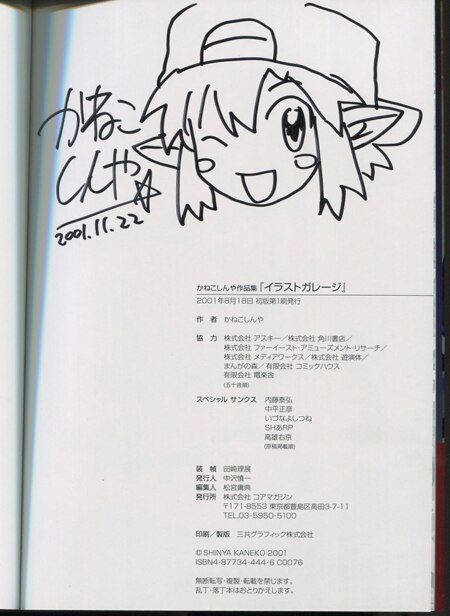 かねこ
しんや
2001.11.22
かねこしんや作品集『イラストガレージ』
2001年8月18日 初版第1刷発行
作 者 かねこしんや
協 力 株式会社 アスキー／株式会社 角川書店／
株式会社 ファーイースト・アミューズメント・リサーチ／
株式会社 メディアワークス／株式会社 遊演体／
まんがの森／有限会社 コミックハウス
有限会社 電楽舎
（五十音順）
スペシャル サンクス 内藤泰弘
中平正彦
いづなよしつね
SHあRP
高雄右京
（原稿掲載順）
装 幀 田崎理展
発行人 中沢慎一
編集人 松宮庸典
発行所 株式会社 コアマガジン
〒171-8553 東京都豊島区高田3-7-11
TEL.03-5950-5100
印刷／製版 三共グラフィック株式会社
©SHINYA KANEKO 2001
ISBN4-87734-444-6 C0076
無断転写・複製・転載を禁じます。
乱丁・落丁本はおとりかえします。